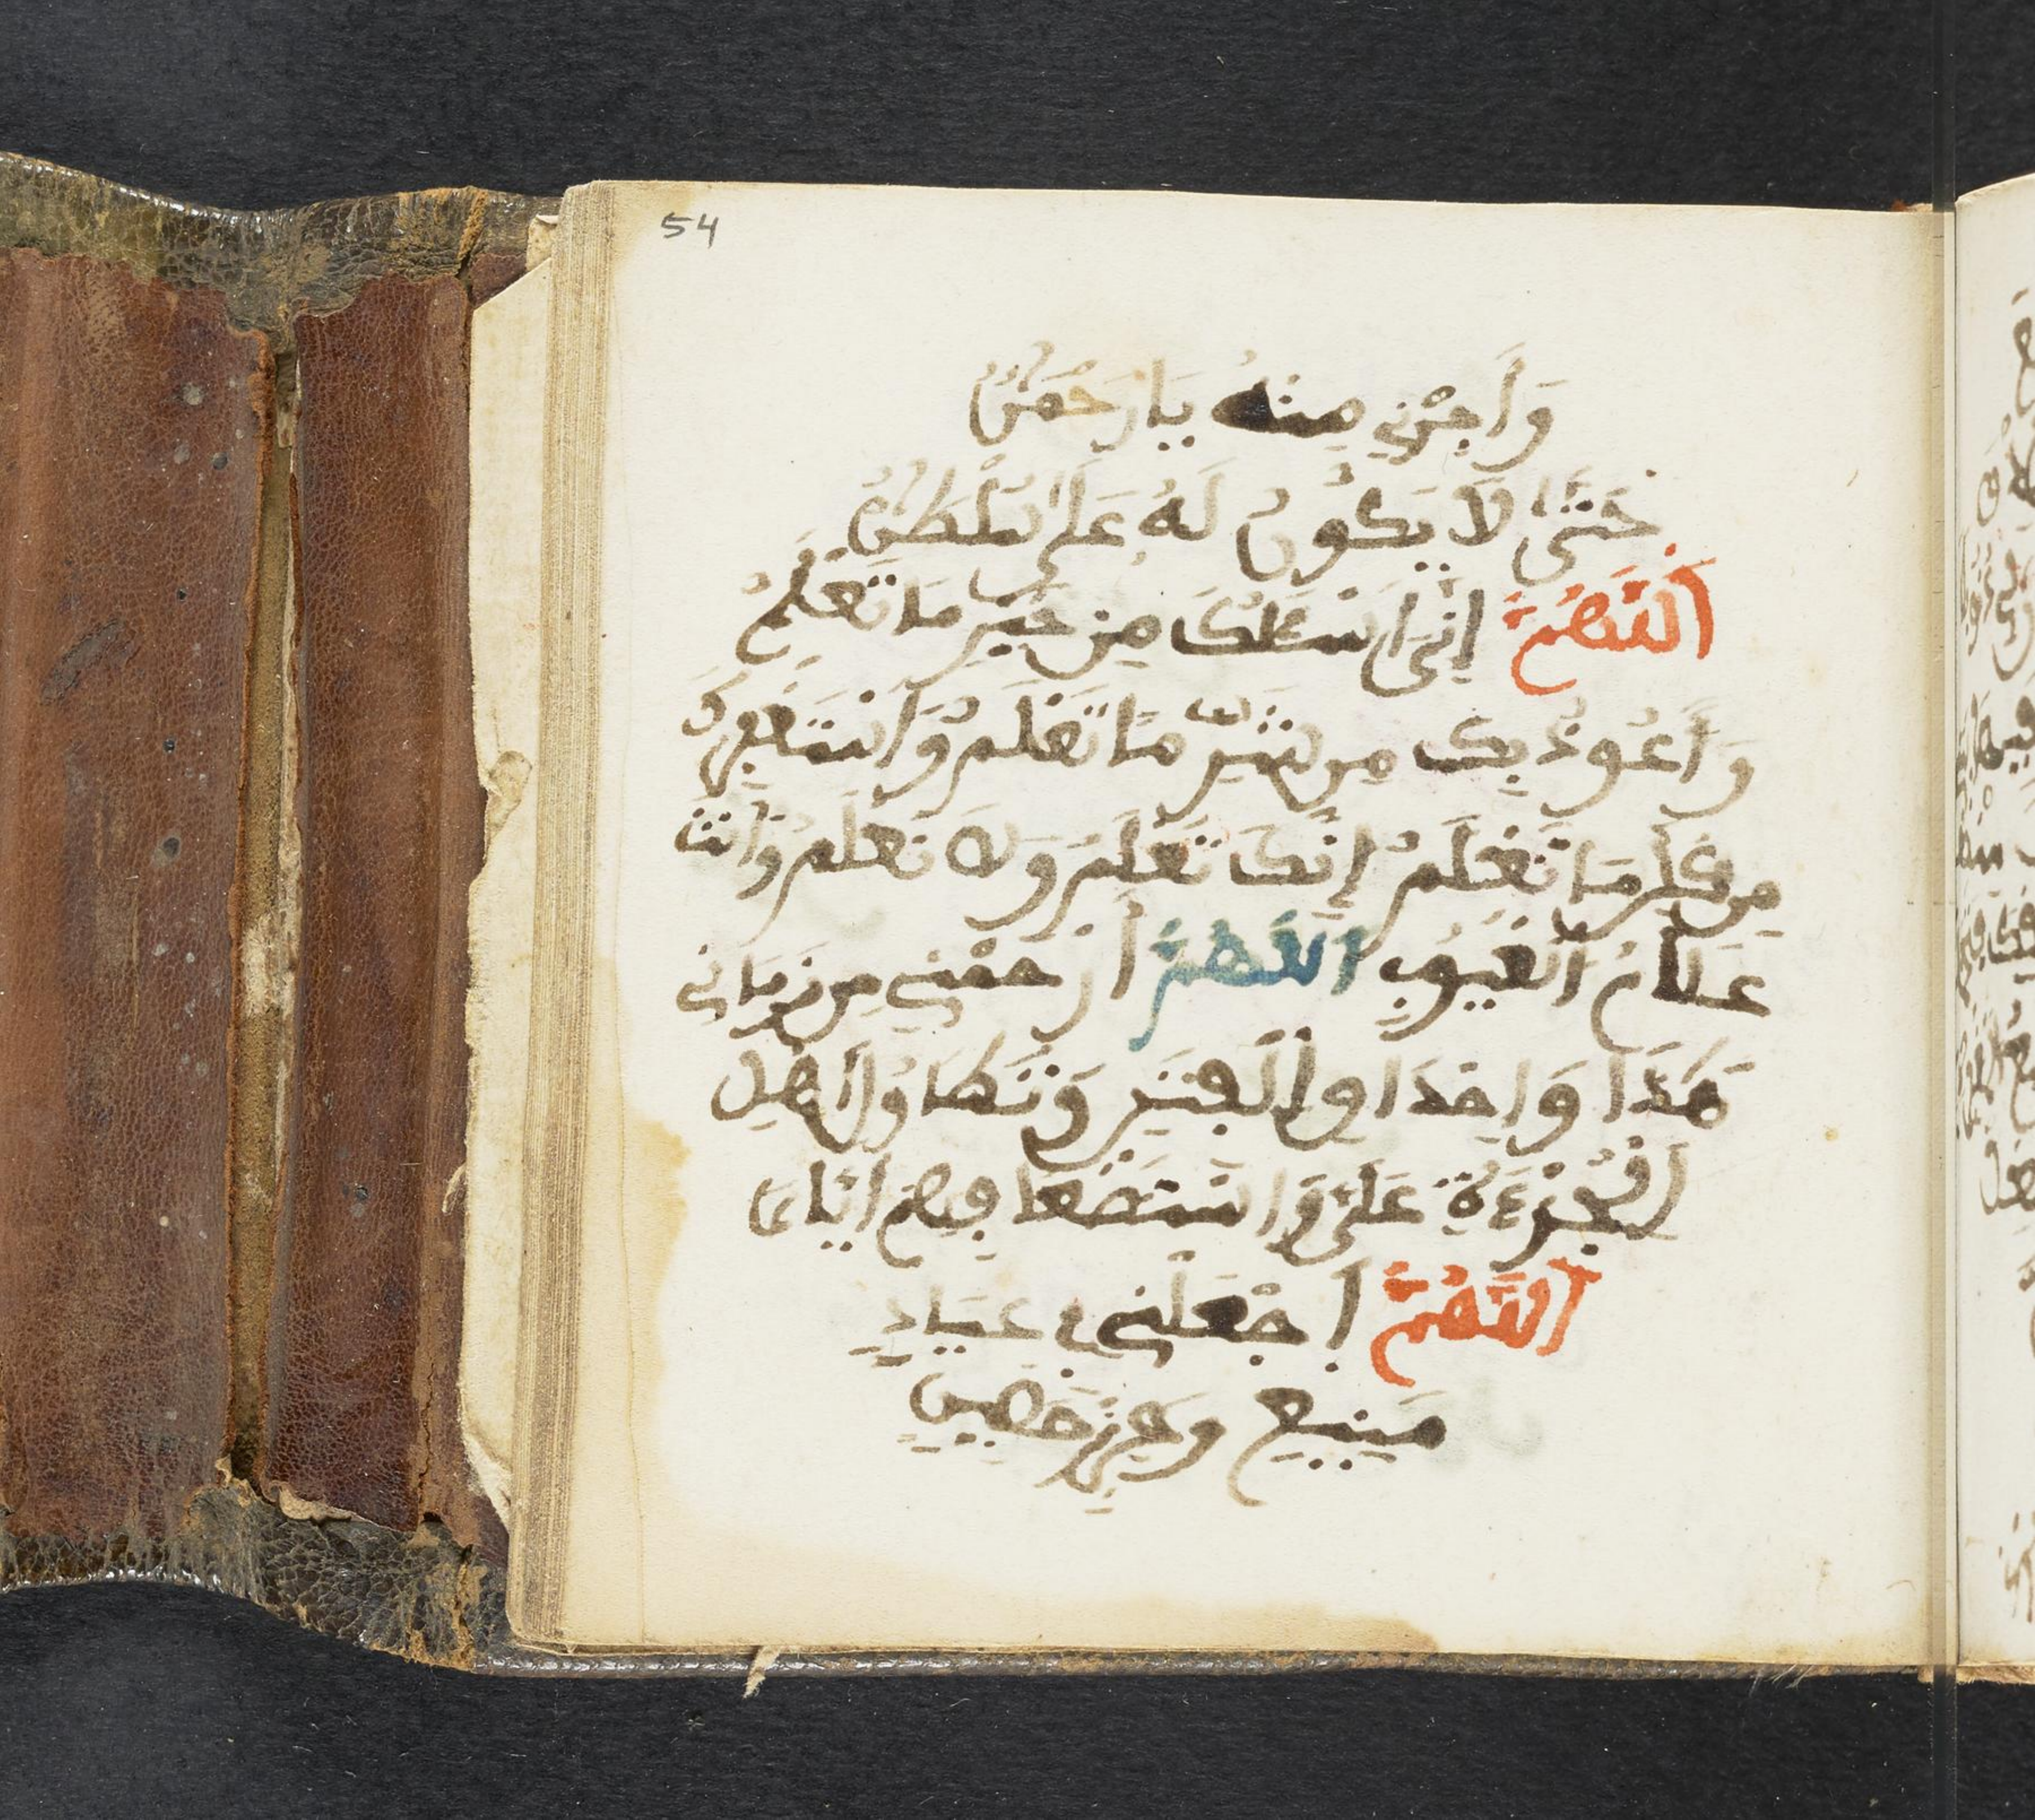 54
وَأَجِرْنِي مِنْهُ يَا رَحْمَٰنُ
حَتَّىٰ لَا يَكُونَ لَهُ عَلَيَّ سُلْطَٰنٌ
اَللَّهُمَّ إِنِّي أَسْـَٔلُكَ مِنْ خَيْرِ مَا تَعْلَمُ
وَأَعُوذُ بِكَ مِن شَرِّ مَا تَعْلَمُ وَأَسْتَغْفِرُكَ
مِن كُلِّ مَا تَعْلَمُ إِنَّكَ تَعْلَمُ وَلَا نَعْلَمُ وَأَنتَ
عَلَّامُ الْغُيُوبِ اللَّهُمَّ ارْحَمْنِي مِن زَمَانِي
هَٰذَا وَإِحْدَاقِ الْفِتَنِ وَتَطَاوُلِ أَهْلِ
الْجُرْءَةِ عَلَيَّ وَاسْتِضْعَافِهِمْ إِيَّايَ
اَللَّهُمَّ اجْعَلْنِي في عِيَاذٍ
مَنِيعٍ وَحِرْزٍ حَصِينٍ